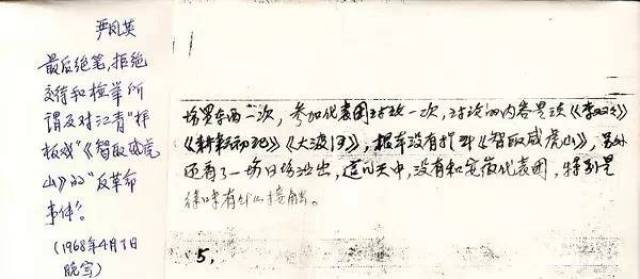 严凤英
最后绝笔,拒绝
交待和检举所
谓反对江青“样
板戏”《智取威虎
山》的“反革命
事件”。
(1968年4月7日
晚写)
场买东西一次,参加代表团讨论一次,讨论的内容是谈《李双双》
《耕耘初记》《大渡河》,根本没有提到《智取威虎山》,另外
还看了一场日场演出,这几天中,没有和安徽代表团,特别是
有什么接触。
5,